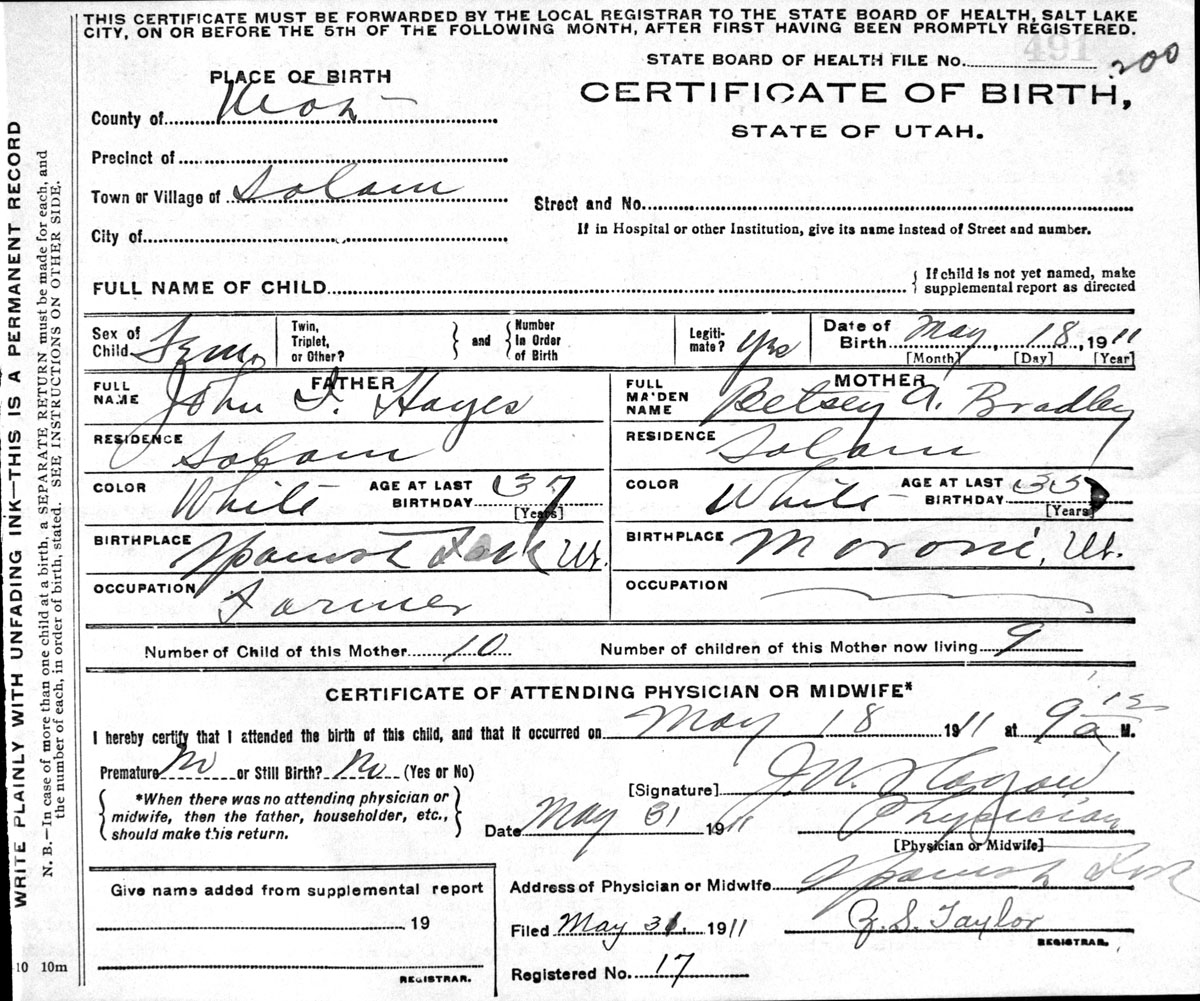 THIS CERTIFICATE MUST BE FORWARDED BY THE LOCAL REGISTRAR TO THE STATE BOARD OF HEALTH, SALT LAKE
CITY, ON OR BEFORE THE 5TH OF THE FOLLOWING MONTH, AFTER FIRST HAVING BEEN PROMPTLY REGISTERED.
491
STATE BOARD OF HEALTH FILE No. 200
PLACE OF BIRTH
CERTIFICATE OF BIRTH,
STATE OF UTAH.
County of
Precinct of
Town or Village of Salem
Street and No.
City of
If in Hospital or other Institution, give its name instead of Street and number.
FULL NAME OF CHILD
{ If child is not yet named, make
supplemental report as directed
Sex of Child Fem. Twin, Triplet, or Other? } and { Number In Order of Birth Legiti-mate? Yes Date of Birth May, 18, 1911
[Month] [Day] [Year]
FATHER MOTHER
FULL NAME John F. Hayes FULL MAIDEN NAME Betsey A. Bradley
RESIDENCE Salem RESIDENCE Salem
COLOR White AGE AT LAST BIRTHDAY 37 [Years] COLOR White AGE AT LAST BIRTHDAY 35 [Years]
BIRTHPLACE Spanish Fork Ut. BIRTHPLACE Moroni, Ut.
OCCUPATION Farmer OCCUPATION
Number of Child of this Mother 10 Number of children of this Mother now living 9
CERTIFICATE OF ATTENDING PHYSICIAN OR MIDWIFE*
I hereby certify that I attended the birth of this child, and that it occurred on May 18 1911 at 9 15 a M.
Premature No or Still Birth? No (Yes or No)
[Signature]
{ *When there was no attending physician or
midwife, then the father, householder, etc.,
should make this return. }
Date May 31 1911 Physician
[Physician or Midwife]
Give name added from supplemental report
19
REGISTRAR.
Address of Physician or Midwife Spanish Fork
Filed May 31, 1911 Z. S. Taylor
REGISTRAR.
Registered No. 17
WRITE PLAINLY WITH UNFADING INK—THIS IS A PERMANENT RECORD
N. B.—In case of more than one child at a birth, a SEPARATE RETURN must be made for each, and
the number of each, in order of birth, stated. SEE INSTRUCTIONS ON OTHER SIDE.
10 10m